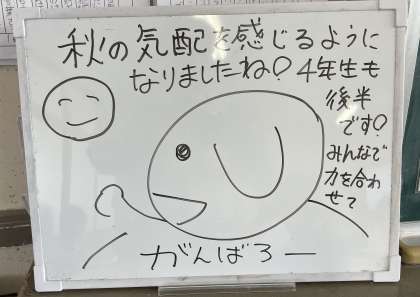 秋の気配を感じるように
なりましたね！4年生も
後半
です！
みんなで
力を合わ
せて
がんばろー